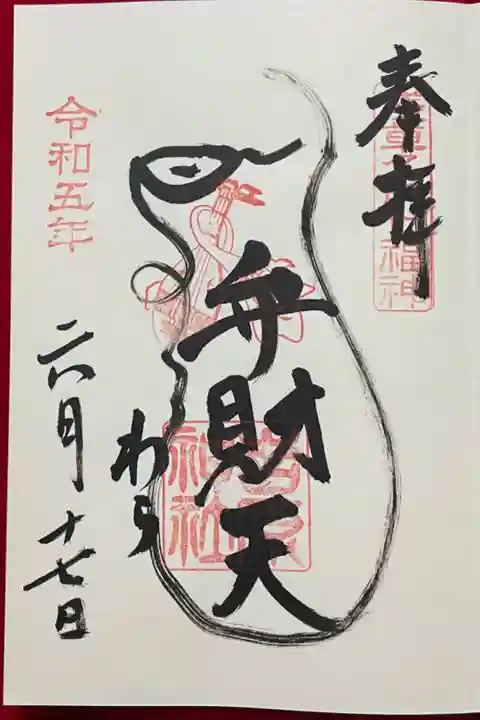 奉拝
福神
弁財天
神社
わら
令和五年
六月十七日